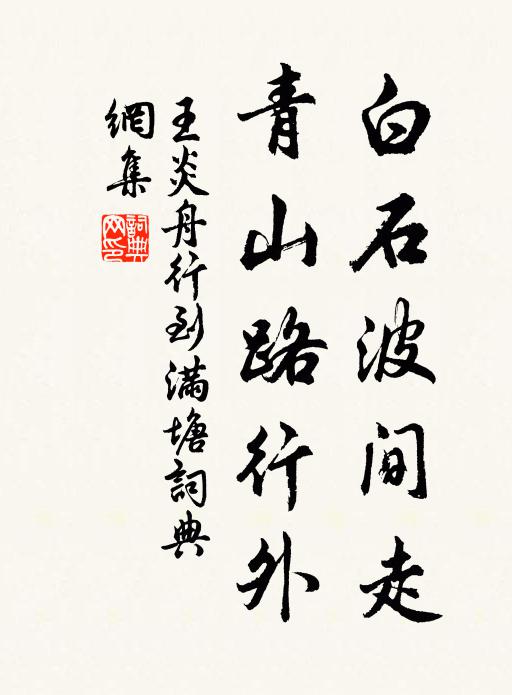 白石波間走
青山路行外
王炎舟行到滿塘詞典
網集
詞典
网印